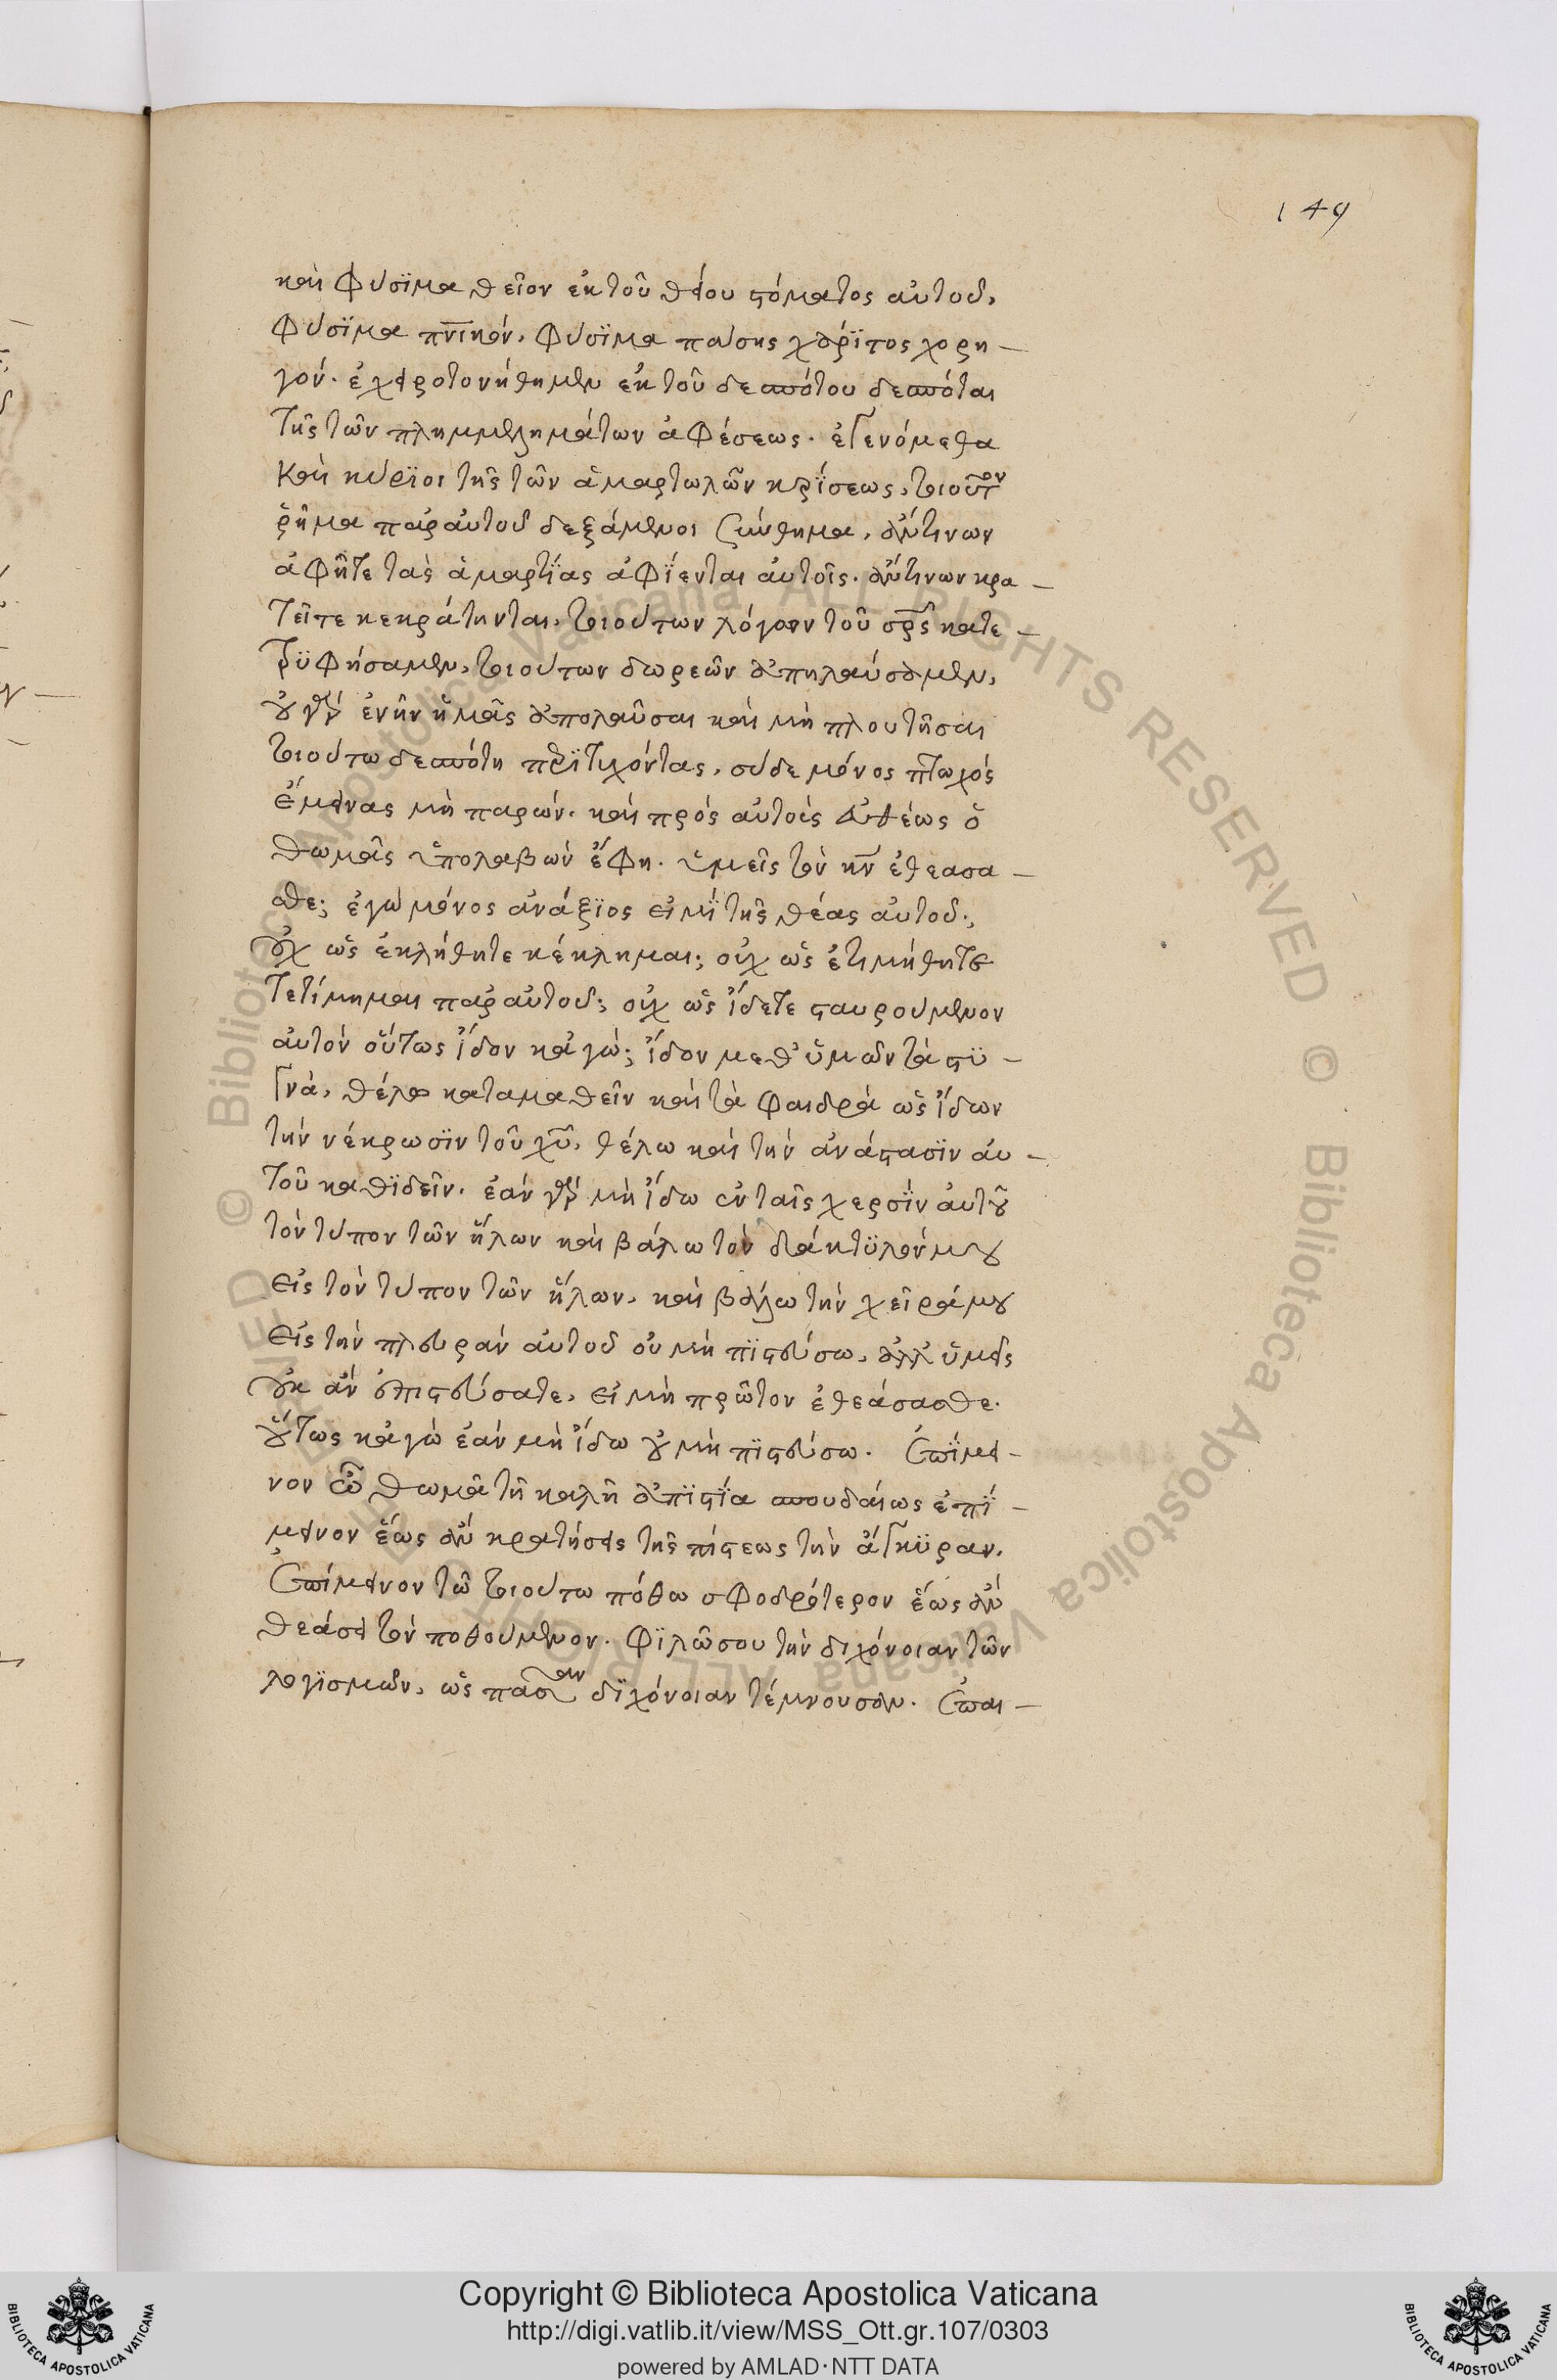 149
καὶ φύσϊμα θεῖον ἐκ τοῦ θείου στόματος αὐτοῦ,
φύσϊμα πν̅ικόν, φύσϊμα πάσης χάρϊτος χορη-
γόν. ἐχειροτονήθημεν ἐκ τοῦ δεσπότου δεσπόται
τῆς τῶν πλημμελημάτων ἀφέσεως. ἐγενόμεθα
καὶ κύρϊοι τῆς τῶν ἁμαρτωλῶν κρΐσεως, τοιοῦτον
ῥῆμα παρ αὐτοῦ δεξάμενοι σύνθημα, ἄν τινων
ἀφῆτε τὰς ἁμαρτΐας ἀφΐενται αὐτοῖς. ἄν τινων κρα-
τεῖτε κεκράτηνται, τοιούτων λόγων τοῦ σρ̅ς κατε-
τρϋφήσαμεν, τοιούτων δωρεῶν ἀπηλαύσαμεν,
οὐ γὰρ ἐνῆν ἡμᾶς ἀπολαῦσαι καὶ μὴ πλουτῆσαι
τοιούτω δεσπότη περϊτυχόντας, σὺ δε μόνος πτωχὸς
ἔμεινας μὴ παρών. καὶ πρὸς αὐτοὺς εὐθέως ὁ
θωμᾶς ὑπολαβὼν ἔφη. ὑμεῖς τὸν κν̅ ἐθεασα-
σθε; ἐγὼ μόνος ἀνάξϊος εἰμΐ τῆς θέας αὐτοῦ;
οὐχ ὡς ἐκλήθητε κέκλημαι; οὐχ ὡς ἐτιμήθητε
τετίμημαι παρ αὐτοῦ; οὐχ ὡς ἴδετε σταυρούμενον
αὐτὸν οὕτως ἴδον κἀγώ; ἴδον μεθ ὑμῶν τὰ στϋ-
γνὰ, θέλω καταμαθεῖν καὶ τὰ φαιδρὰ ὡς ἴδων
τὴν νέκρωσϊν τοῦ χυ̅, θέλω καὶ τὴν ἀνάστασϊν αὐ-
τοῦ καθϊδεῖν. ἐὰν γὰρ μὴ ἴδω ἐν ταῖς χερσῒν αὐτοῦ
τὸν τύπον τῶν ἥλων καὶ βάλω τὸν δάκτϋλόν μου
εἰς τὸν τύπον τῶν ἥλων, καὶ βάλω τὴν χεῖρά μου
εἰς τὴν πλευρὰν αὐτοῦ οὐ μὴ πϊστεύσω, ἀλλ ὑμεῖς
οὐκ ἂν ἐπιστεύσατε, εἰ μὴ πρῶτον ἐθεάσασθε.
οὕτως κἀγὼ ἐὰν μὴ ἴδω οὐ μὴ πϊστεύσω. Ἐπΐμει-
νον ὦ θωμᾶ τῆ καλῆ ἀπϊστΐα σπουδαίως ἐπΐ-
μεινον ἕως ἂν κρατήσεις τῆς πίστεως τὴν ἄγκϋραν,
Ἐπίμεινον τῶ τοιούτω πόθω σφοδρότερον ἕως ἂν
θεάσει τὸν ποθούμενον. φϊλῶ σου τὴν διχόνοιαν τῶν
λογϊσμῶν, ὡς πᾶσαν δϊχόνοιαν τέμνουσαν. Ἐπαι-
Copyright © Biblioteca Apostolica Vaticana
http://digi.vatlib.it/view/MSS_Ott.gr.107/0303
powered by AMLAD·NTT DATA